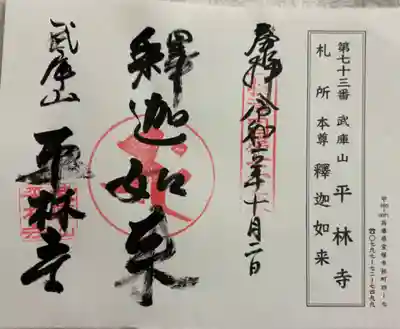 第七十三番 武庫山 平林寺
札所本尊 釋迦如来
奉拝 令和五年十月二日
釋迦如来
武庫山
平林寺